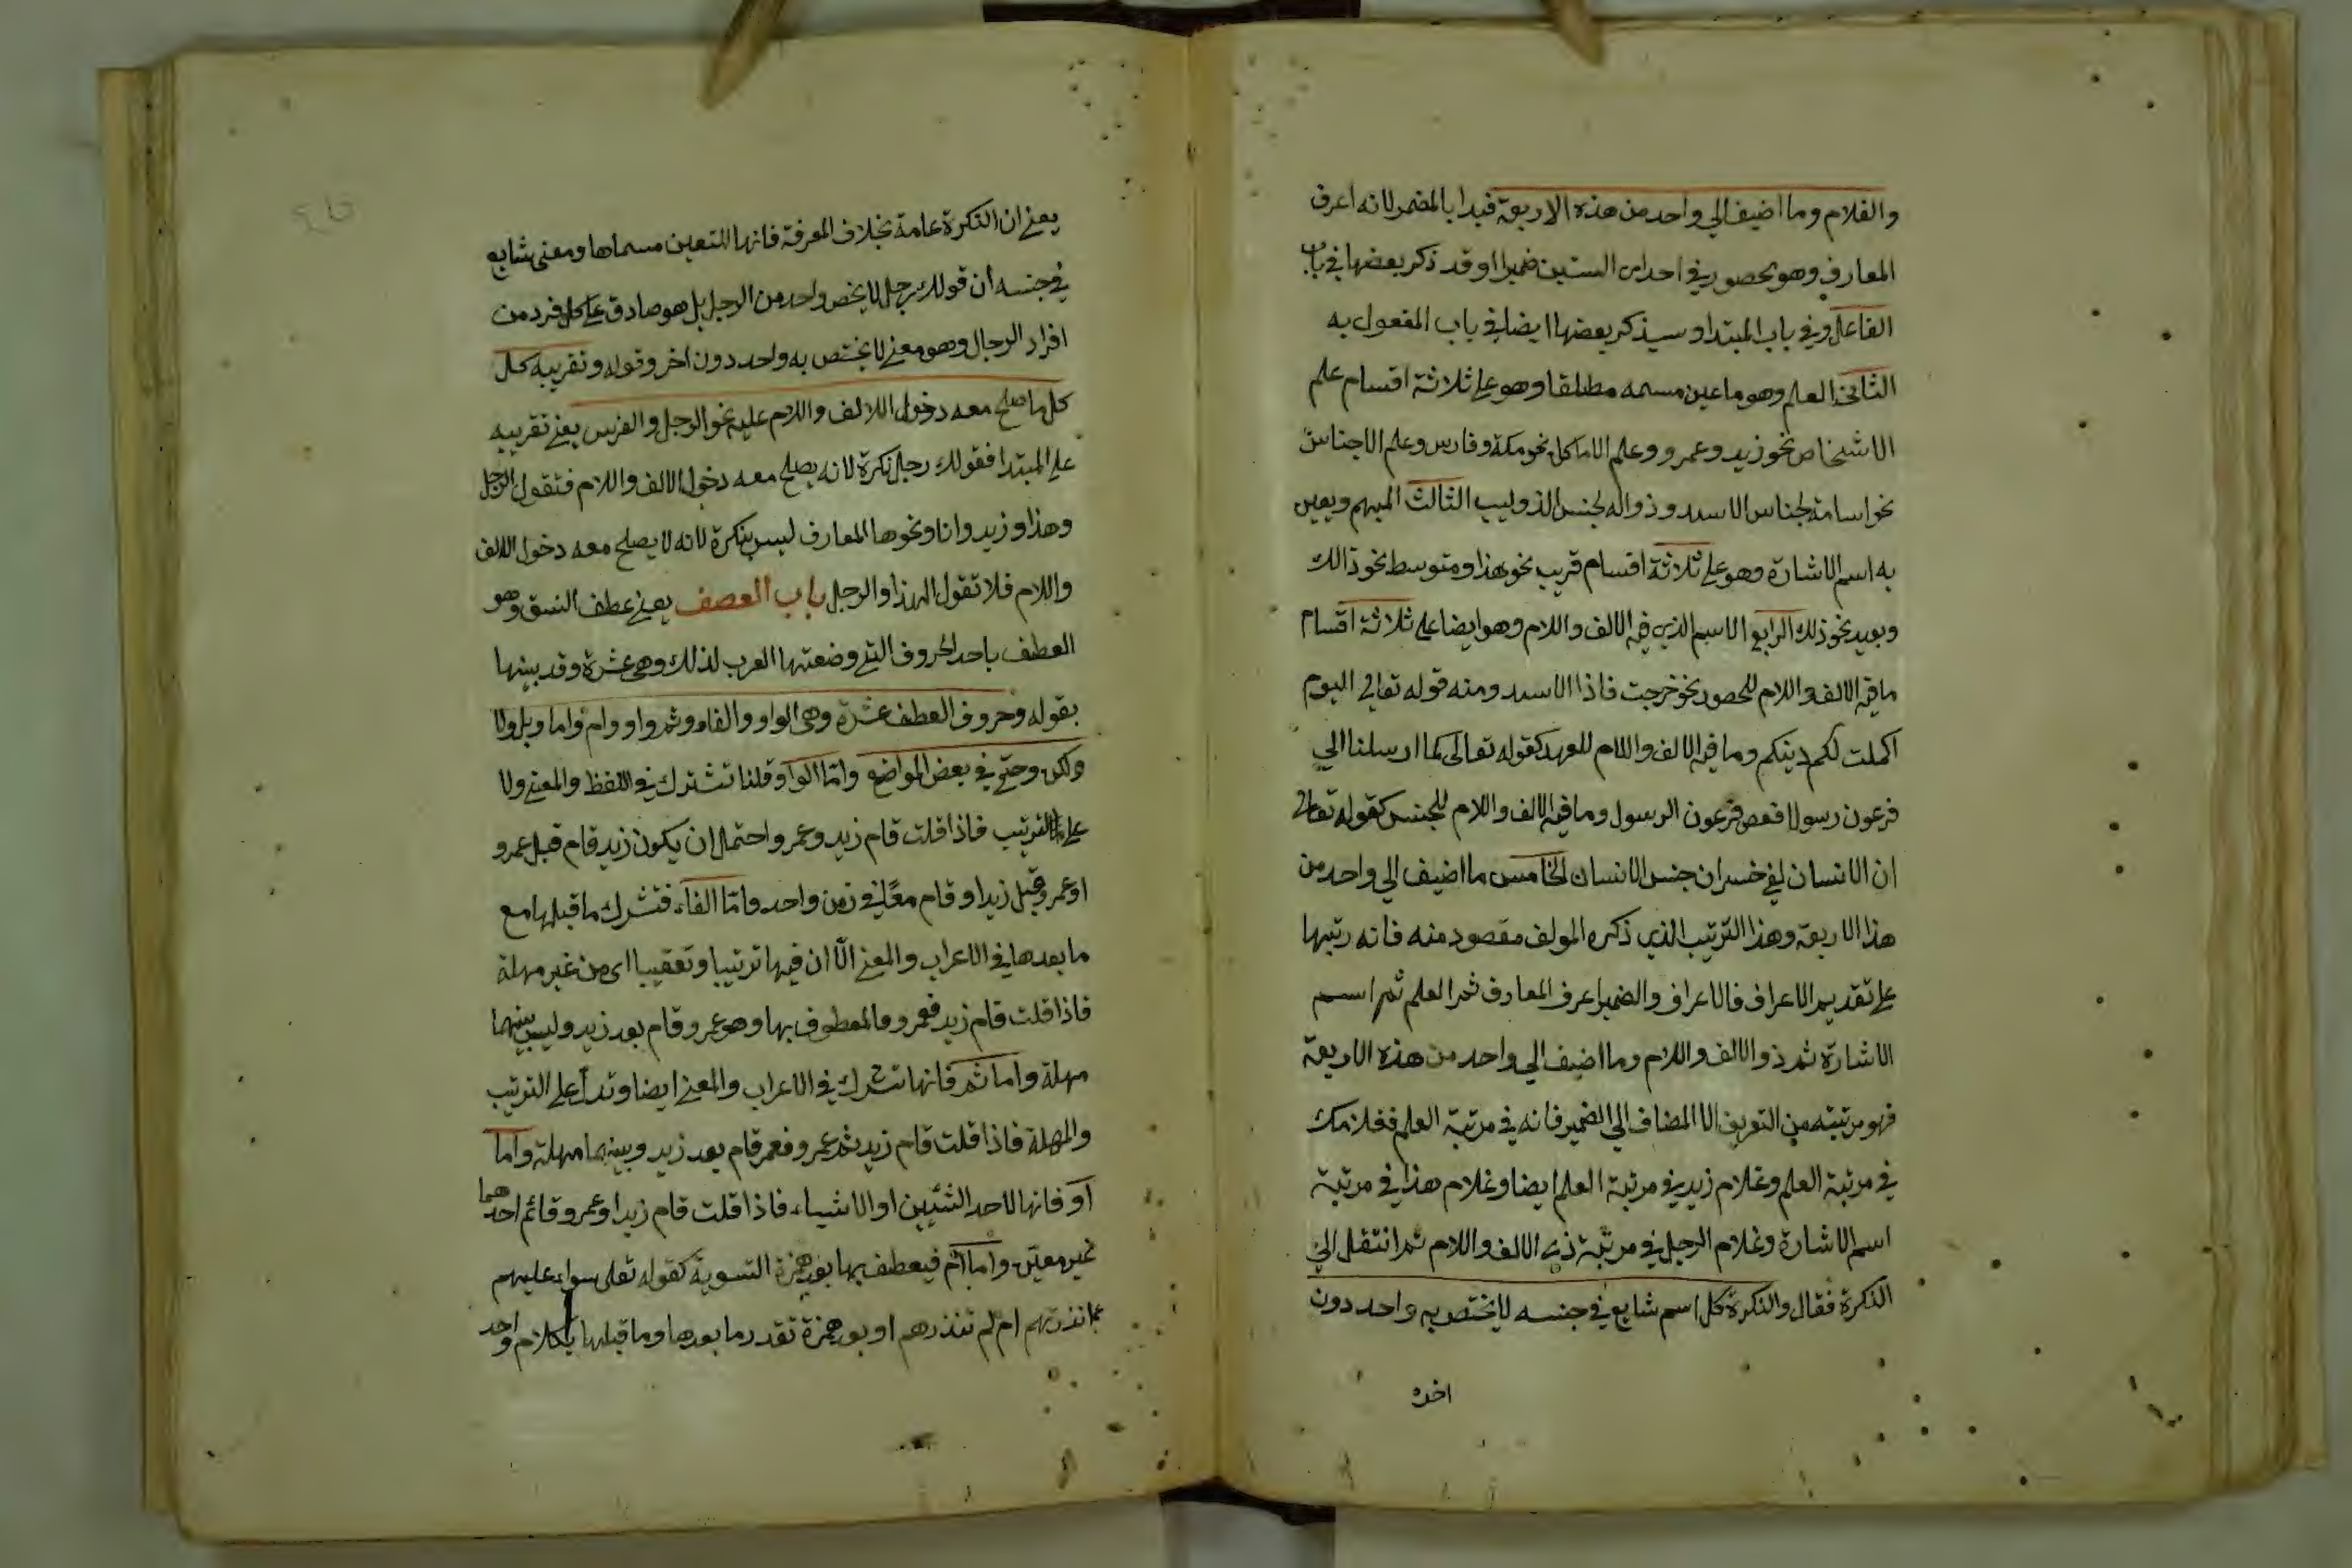 والغلام وما اضيف الي واحد من هذه الاربعة فبدا بالمضمر لانه اعرف
المعارف وهو محصور في احدى الستين ضميرا وقد ذكر بعضها في باب
الفاعل وفي باب المبتدا وسيذكر بعضها ايضا في باب المفعول به
الثاني العلم وهو ما عين مسمه مطلقا وهو علي ثلاثة اقسام علم
الاشخاص نحو زيد وعمرو وعلم الاماكل نحو مكة وفارس وعلم الاجناس
نحو اسامة لجناس الاسد وذواله لجنس الذوليب الثالث المبهم ويعين
به اسم الاشارة وهو علي ثلاثة اقسام قريب نحو هذا ومتوسط نحو ذالك
وبعيد نحو ذلك الرابع الاسم الذي فيه الالف واللام وهو ايضا علي ثلاثة اقسام
ما فيه الالف واللام للحصور نحو خرجت فاذا الاسد ومنه قوله تعالي اليوم
اكملت لكم دينكم وما فيه الالف واللام للعهد كقوله تعالى كما ارسلنا الي
فرعون رسولا فعص فرعون الرسول وما فيه الالف واللام للجنس كقوله تعالى
ان الانسان لفي خسر ان جنس الانسان الخامس ما اضيف الي واحد من
هذا الاربعة وهذا الترتيب الذي ذكره المولف مقصود منه فانه رتبها
علي تقديم الاعراف فالاعراف والضمير اعرف المعارف ثم العلم ثم اسم
الاشارة ثم ذو الالف واللام وما اضيف الي واحد من هذه الاربعة
فهو مرتبته من التعريف الا المضاف الي الضمير فانه في مرتبة العلم فغلامك
في مرتبة العلم وغلام زيد في مرتبة العلم ايضا وغلام هذا في مرتبة
اسم الاشارة وغلام الرجل في مرتبة ذي الالف واللام ثم انتقل الي
النكرة فقال والنكرة كل اسم شايع في جنسه لا يختص به واحد دون
اخره
يعني ان النكرة عامة بخلاف المعرفة فانها للتعين مسماها ومعنى شايع
في جنسه أن قولك رجل لا يخص واحد من الرجل بل هو صادق علي كل فرد من
افراد الرجال وهو معني لا يختص به واحد دون اخر وقوله وتقريبه كل
كل ما صلح معه دخول اللالف واللام عليه نحو الرجل والفرس يعني تقريبه
علي المبتدا فقولك رجل نكرة لانه يصلح معه دخول الالف واللام فتقول الرجل
وهذا وزيد وانا ونحوها المعارف ليس بنكرة لانه لا يصلح معه دخول الالف
واللام فلا تقول الهذا والرجل باب العصف يعني عطف النسق وهو
العطف باحد الحروف التي وضعتها العرب لذلك وهي عشرة وقد بينها
بقوله وحروف العطف عشرة وهي الواو والفاء وثم واو وام واما وبل ولا
ولكن وحتي في بعض المواضع وامّا الواو قلنا تشترك في اللفظ والمعني ولا
علي الترتيب فاذا قلت قام زيد وعمرو احتمل ان يكون زيد قام قبل عمرو
او عمرو قبل زيد او قام معًا في زمن واحد وامّا الفاء فتشرك ما قبلها مع
ما بعدها في الاعراب والمعني الّا ان فيها ترتيبا وتعقيبا اى من غير مهلة
فاذا قلت قام زيد فعمرو فالمعطوف بها وهو عمرو قام بعد زيد وليس بينهما
مهلة واما ثم فانها تشرك في الاعراب والمعني ايضا وتدل علي الترتيب
والمهلة فاذا قلت قام زيد ثم عمرو فعمر قام بعد زيد وبينهما مهلة واما
او فانها لاحد الشئين او الاشياء فاذا قلت قام زيد او عمرو قائم احدهما
غير معين واما ام فيعطف بها بعد همزة التسوية كقوله تعلى سواء عليهم
ءانذرتهم ام لم تنذرهم او بعد همزة تقدر ما بعدها وما قبلها بكلام واحد